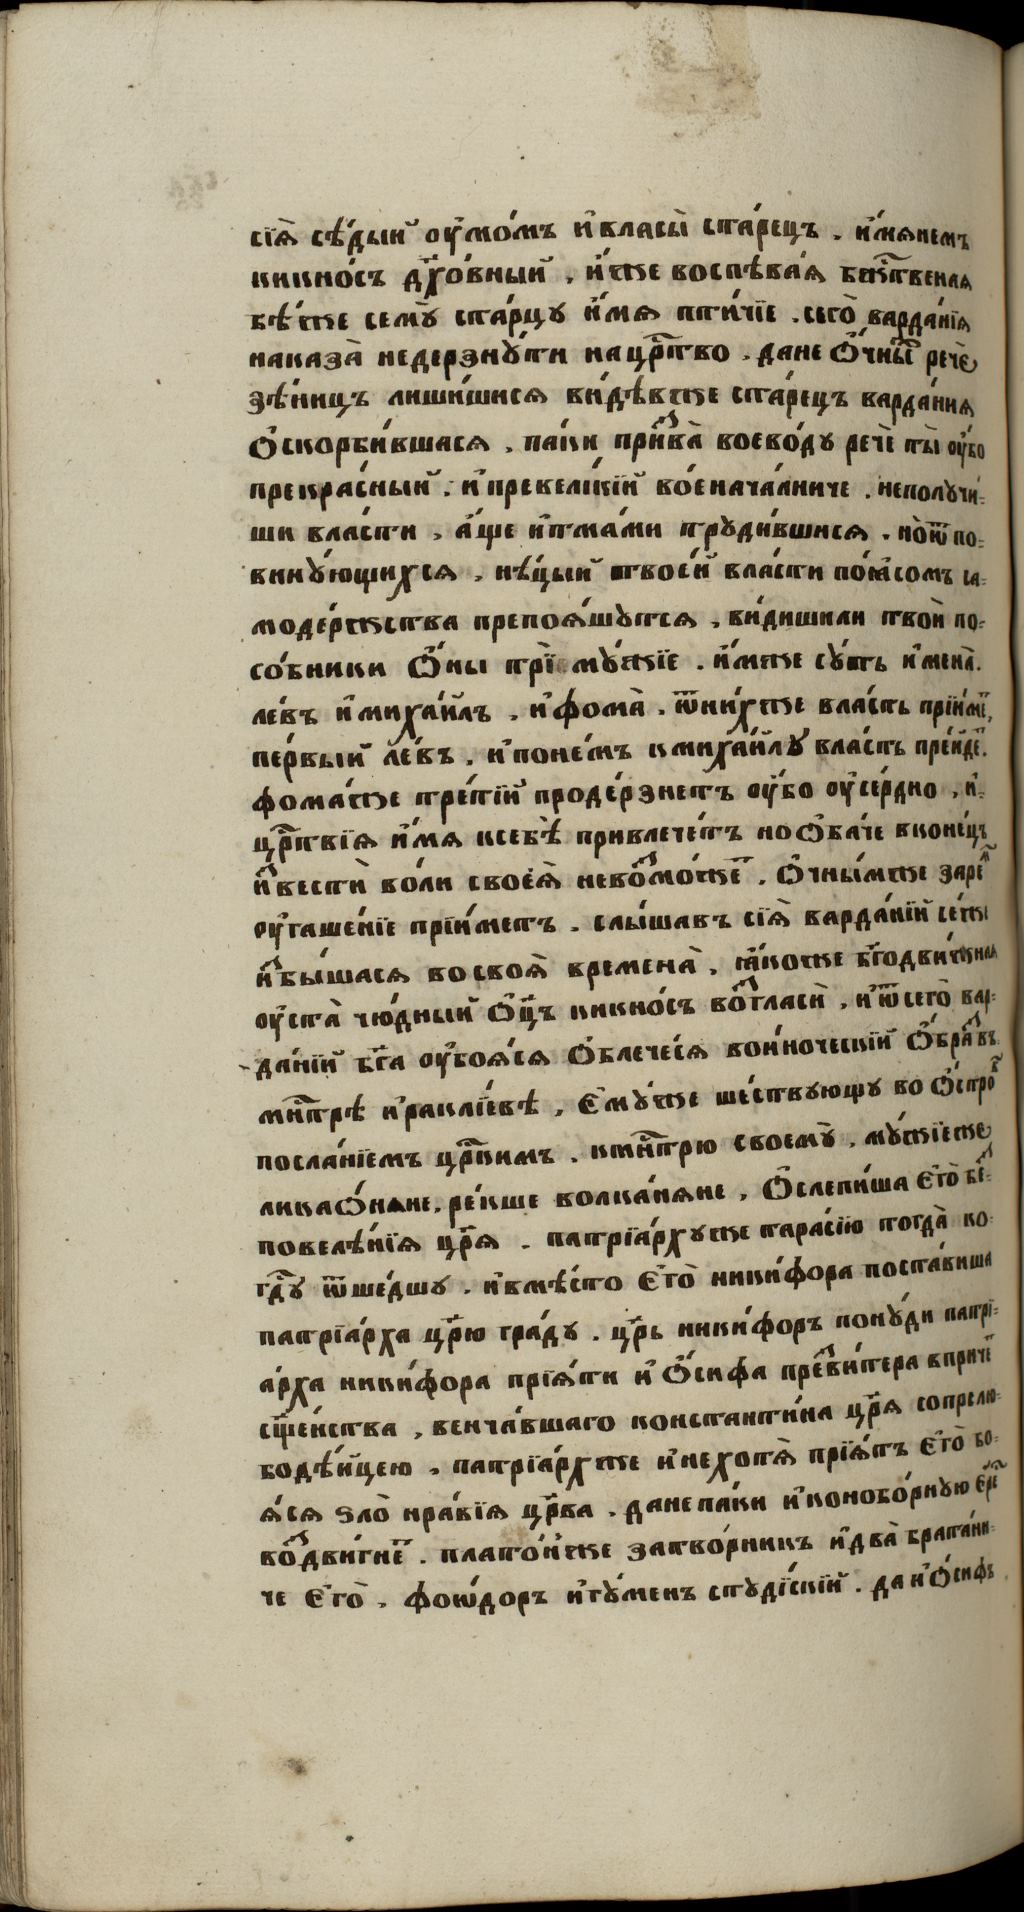 сїѧ̀ сѣ́дый ᲂу҆мо́мъ и҆власы̀ ста́рецъ . и҆́мѧнемъ
кикно́съ дх҃о́вный , и҆́же воспѣва́ѧ бж҃ⷭ҇твенаѧ
бѣ́же семꙋ̀ ста́рцꙋ и҆́мѧ пти́чїе . сего̀ варда́нїѧ
наказа̀ недерзнꙋ́ти нацрⷭ҇тво . дане ѻ҆́чныⷯ речѐ
зѣ́ницъ лиши́шисѧ ви́дѣвже ста́рецъ варда́нїѧ
ѻ҆скорби́вшасѧ , па́ки призва̀ воево́дꙋ речѐ ты̀ ᲂу҆́бо
прекра́сный . и҆превели́кїй во́еначалниче . неполꙋчи́-
ши вла́сти , а҆́ще и҆тма́ми трꙋди́вшисѧ . но̀ѿ по-
винꙋ́ющихсѧ , нѣ́цый твое́й вла́сти по́ꙗсомъ са-
моде́ржства препоѧ́шꙋтсѧ , ви́дишили твои̑ по-
со́бники ѻ҆́ны трї мꙋ́жїе . и҆́мже сꙋ́ть и҆мена̀ .
ле́въ и҆миха́йлъ . и҆фома̀ . ѿни́хже вла́сть прїи́меⷮ ,
пе́рвый ле́въ . и҆поне́мъ кмиха́йлꙋ вла́сть пре́йдеⷮ .
фома́же тре́тїй проде́рзнетъ ᲂу҆́бо ᲂу҆се́рдно , и҆-
црⷭ҇твїѧ и҆́мѧ ксебѣ̀ привлече́тъ но ѻ҆ба́че вконе́цъ
и҆звестѝ во́ли своеѧ̀ невозмо́жеⷮ . ѻ҆чны́мже зарѧⷨ
ᲂу҆гаше́нїе прїи́метъ . слы́шавъ сїѧ̀ варда́нїй се́же
и҆збы́шасѧ восвоѧ̀ времена̀ . ꙗ҆́коже бг҃одви́жнаѧ
ᲂу҆ста̀ чю́дный ѻ҆ц҃ъ кикно́съ возгласѝ , и҆ѿсего̀ вар-
да́нїй бг҃а ᲂу҆боѧ́сѧ ѻ҆блече́сѧ вои́ноческїй ѻ҆́бразъ
мнⷭ҇трѣ̀ и҆раклїевѣ , є҆мꙋ́же ше́ствꙋющꙋ во ѻ҆́строⷡ
посла́нїемъ црⷭ҇кимъ . кмнⷭ҇трю своемꙋ̀ . мꙋ́жїеже
ликаѻ́нѧне , ре́кше волка́нѧне , ѻ҆слепи́ша є҆го̀ беⷥ-
повелѣ́нїѧ црⷭ҇ѧ . патрїа́рхꙋже тара́сїю тогда̀ ко-
гдⷭ҇ꙋ ѿше́дшꙋ . и҆вмѣ́сто є҆го̀ ники́фора поста́виша
патрїа́рха црⷭ҇ю гра́дꙋ . црⷭ҇ь ники́форъ понꙋ́ди патрї-
а́рха ники́фора прїѧ́ти и҆ ѻ҆́сифа презви́тера вприче́ⷮ
сщ҃е́нства , венча́вшаго константи́на црⷭ҇ѧ сопрелю-
бодѣ́йцею , патрїа́рхже и҆нехотѧ̀ прїѧ́тъ є҆го̀ бо-
ѧ́сѧ ѕло̀ нра́вїѧ цр҃ва . данепа́ки и҆конобо́рнꙋю є҆́реⷭ҇
воздви́гнеⷮ . плато́нже затво́рникъ и҆два̀ брата́ни-
че є҆го̀ . фоѡ́доръ и҆гꙋ́менъ стꙋді́скїй . да и҆ ѻ҆́сифъ